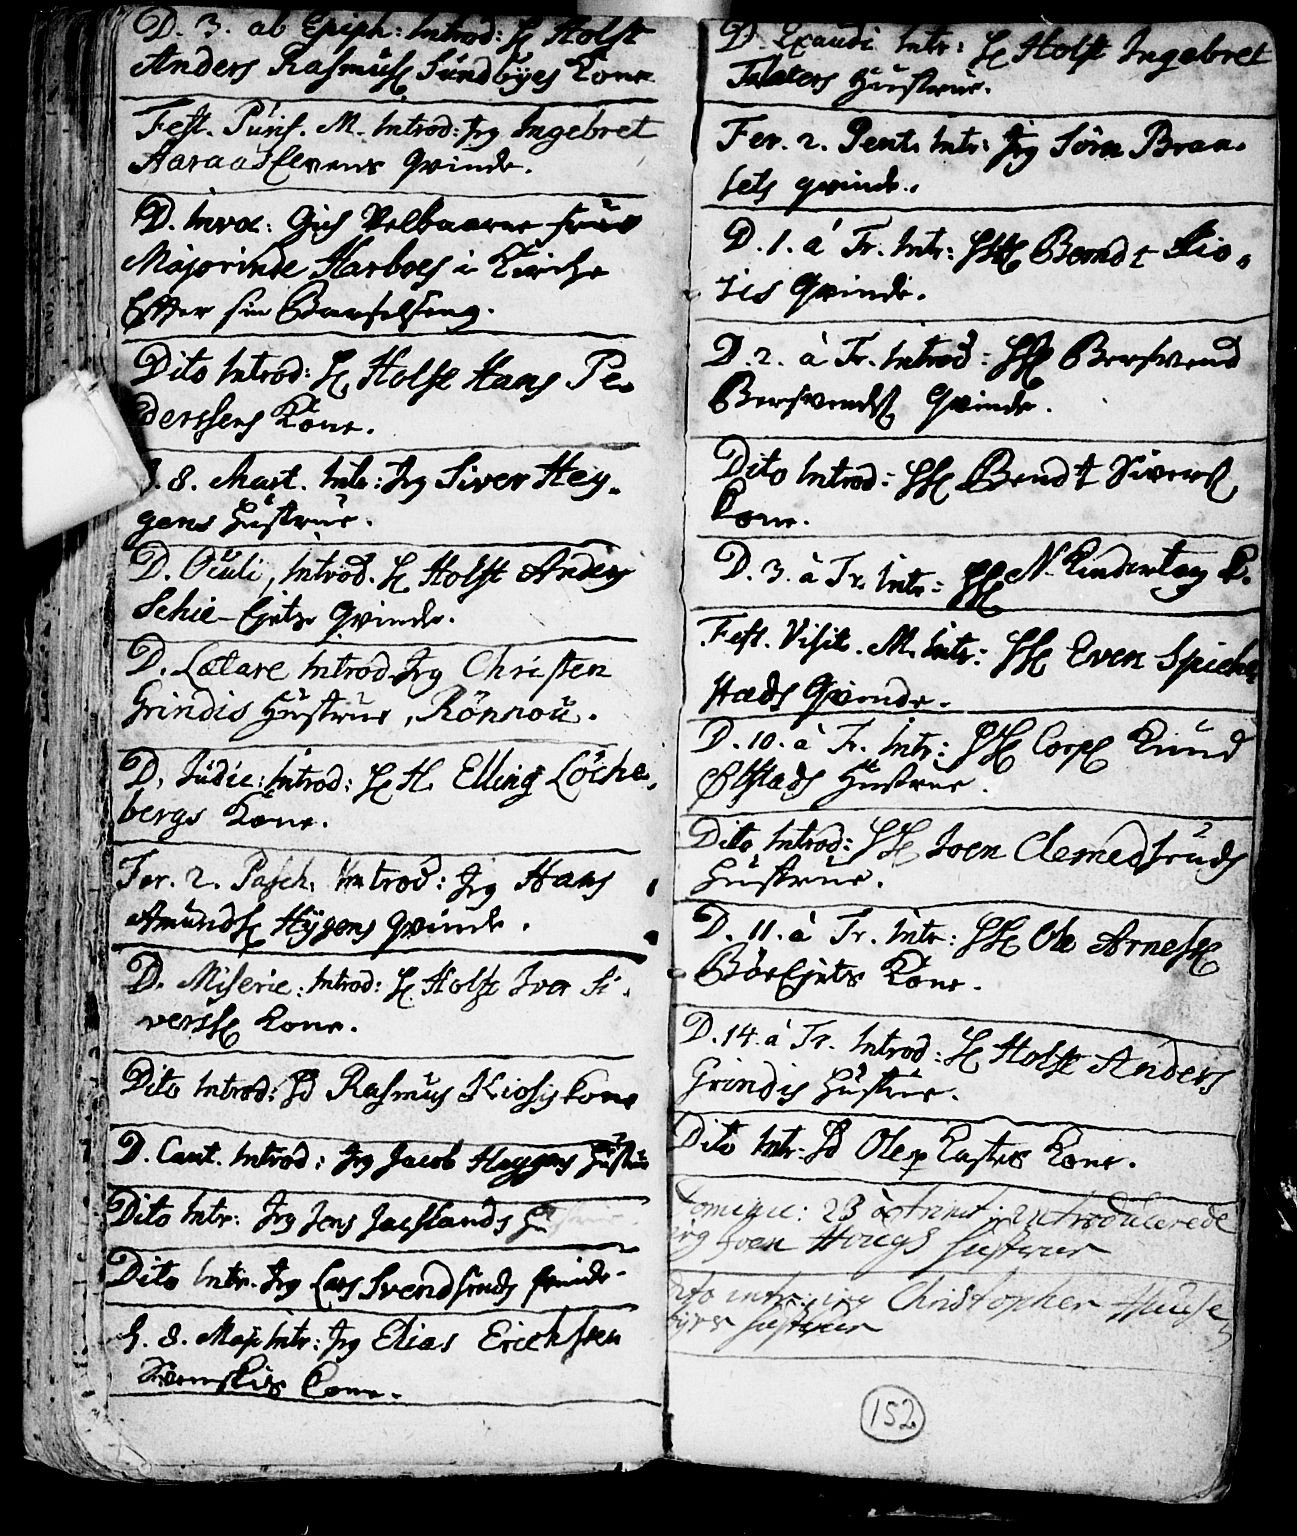 D. 3. ab Epiph: Introd: H Holst
Anders Rasmus Sundbÿes Kone
Fest. Purif. M. Introd: Jeg Ingebret
Qvinde.
D. Invoc: Gich Velbaarne Frue
Majorinde Harboes i Kirche
Efter sin Barselseng.
Dito Introd: H Holst Hans Pe-
dersens Kone.
8. Mart. Intr: Jeg Siver Hey-
gens Hustrue.
D. Oculi, Introd. H Holst Anders
Qvinde.
D. Lætare Introd Jeg Christen
Grindis Hustrue, Rönnou.
D. Judic: Introd: H H. Elling Löche-
bergs Kone.
Fer. 2. Pasch. Introd: Jeg Hans
Amunds Hÿgens qvinde.
D. Miseric: Introd: H Holst Iver Si-
vers Kone.
Dito Introd: Rasmus Kiosis kone
D. Cant. Introd: Jeg Jacob Heggens Hustrue
Dito Intr: Jeg Jens Jaeslands
Dito Intr. Jeg Lars Svendsruds Qvinde.
8. Maji Intr: Jeg Elias Erichsen
Kone.
D. Exaudi Intr: H Holst Ingebret
Hustrue.
Fer. 2. Pent. Intr: Jeg Sörn Braa-
sets qvinde.
D. 1. à Tr. Intr: Berndt Kio-
sis Qvinde.
D. 2. à Tr. Introd: Bersvend
Bersvends Qvinde.
Dito Introd: Bendt Sivers
Kone.
D. 3. à Tr. Intr: N. Kindertag K.
Fest. Visit. M. Intr: Even Spich-
stads Qvinde.
D. 10. à Tr. Intr: Corp Knud
Ølstads Hustrue.
Dito Introd: Joen Clemedsruds
Hustrue.
D. 11. à Tr. Intr: Ole Arnes
Kone.
D. 14. à Tr. Introd: H Holst Anders
Grindis Hustrue.
Dito Intr: Ole Kone.
Domique: 23 à trinit: Introducerede
jeg Joen Hougs Hustrue
Dito intr: jeg Christopher
Hustrue
152